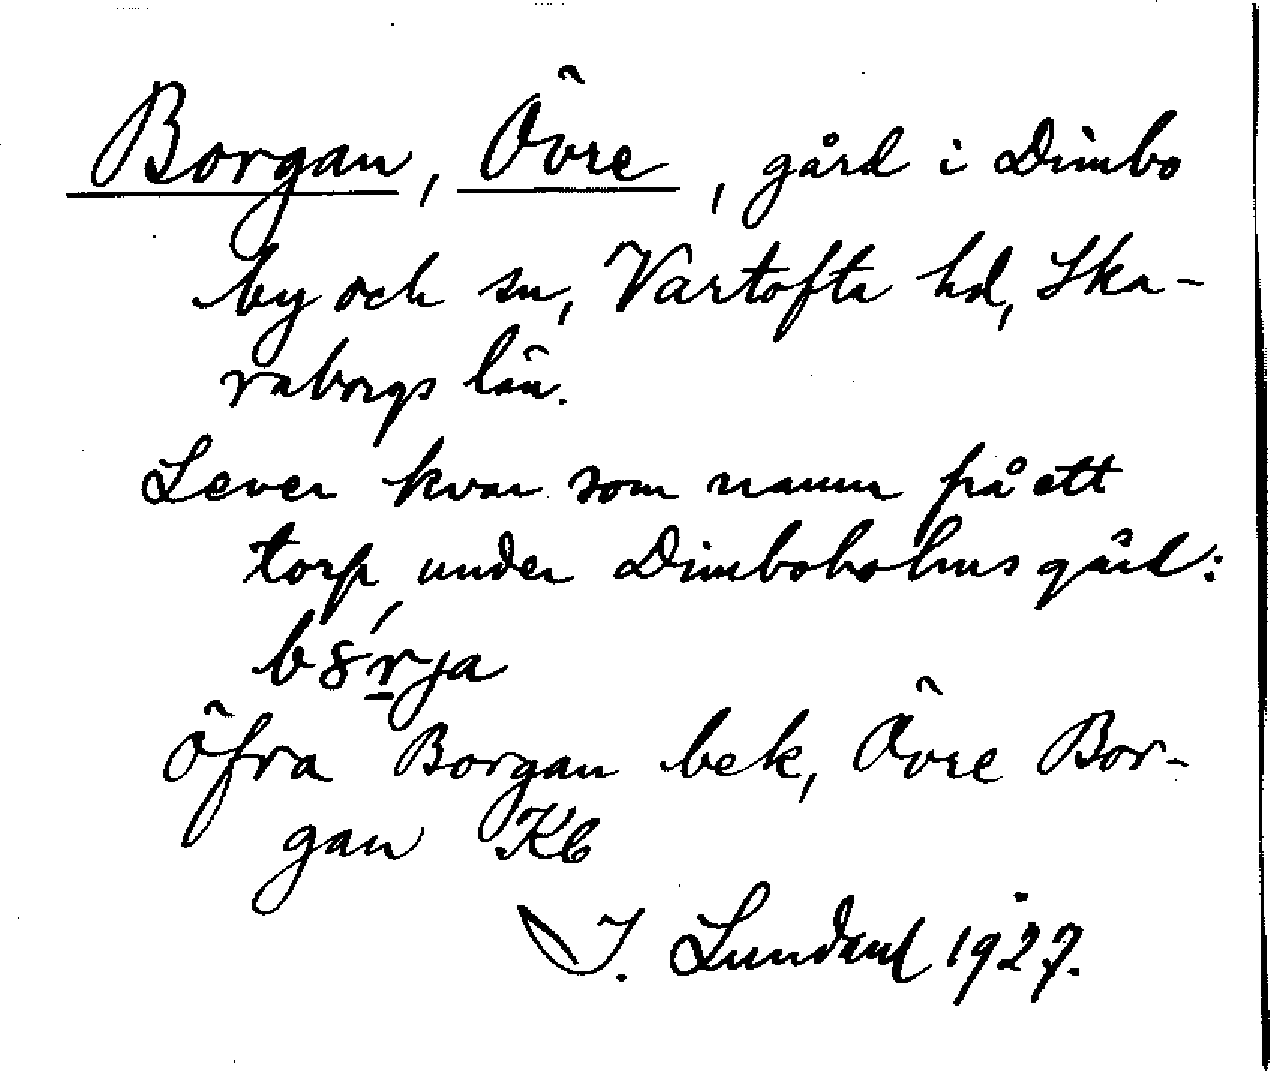 Borgan, Övre, gård i Dimbo
by och sn, Vartofta hd, Ska-
raborgs län.
Lever kvar som namn på ett
torp under Dimboholms gård:
Öfra Borgan bek, Övre Bor-
gan Kb
I. Lundahl 1927.